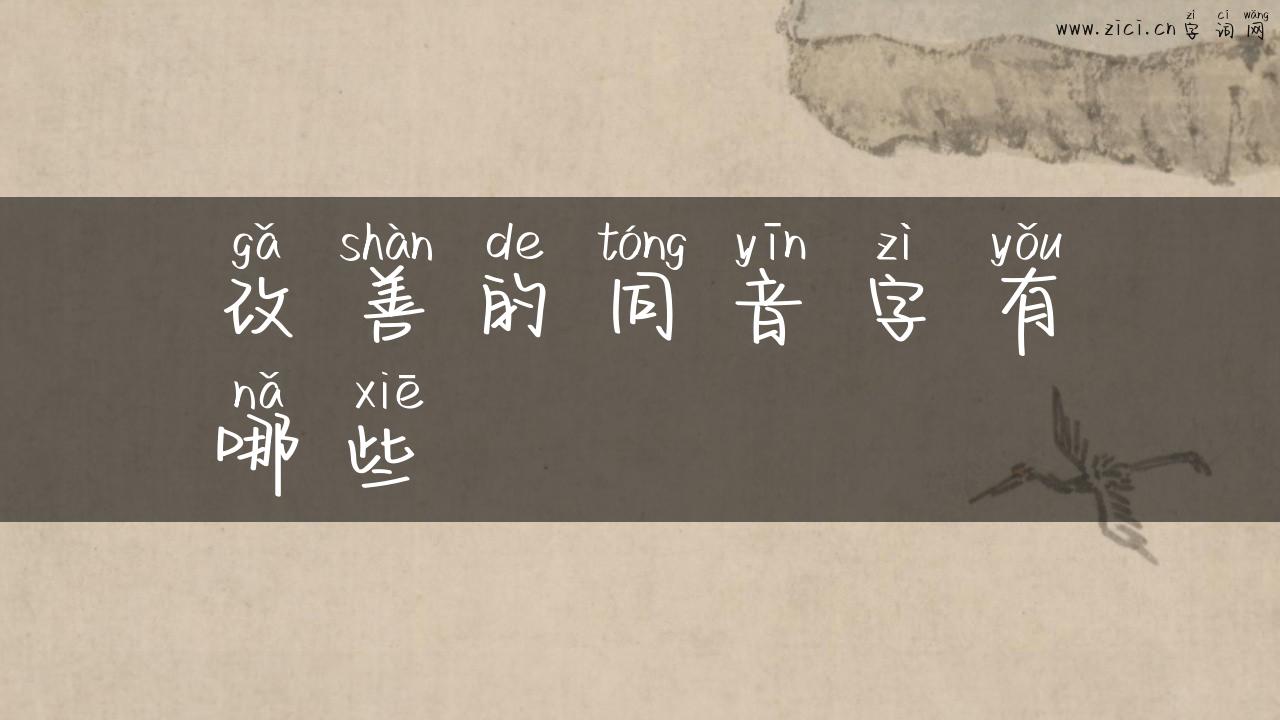 zì cí wǎng
www.zici.cn 字词网
gǎ shàn de tóng yīn zì yǒu
改善的同音字有
nǎ xiē
哪些